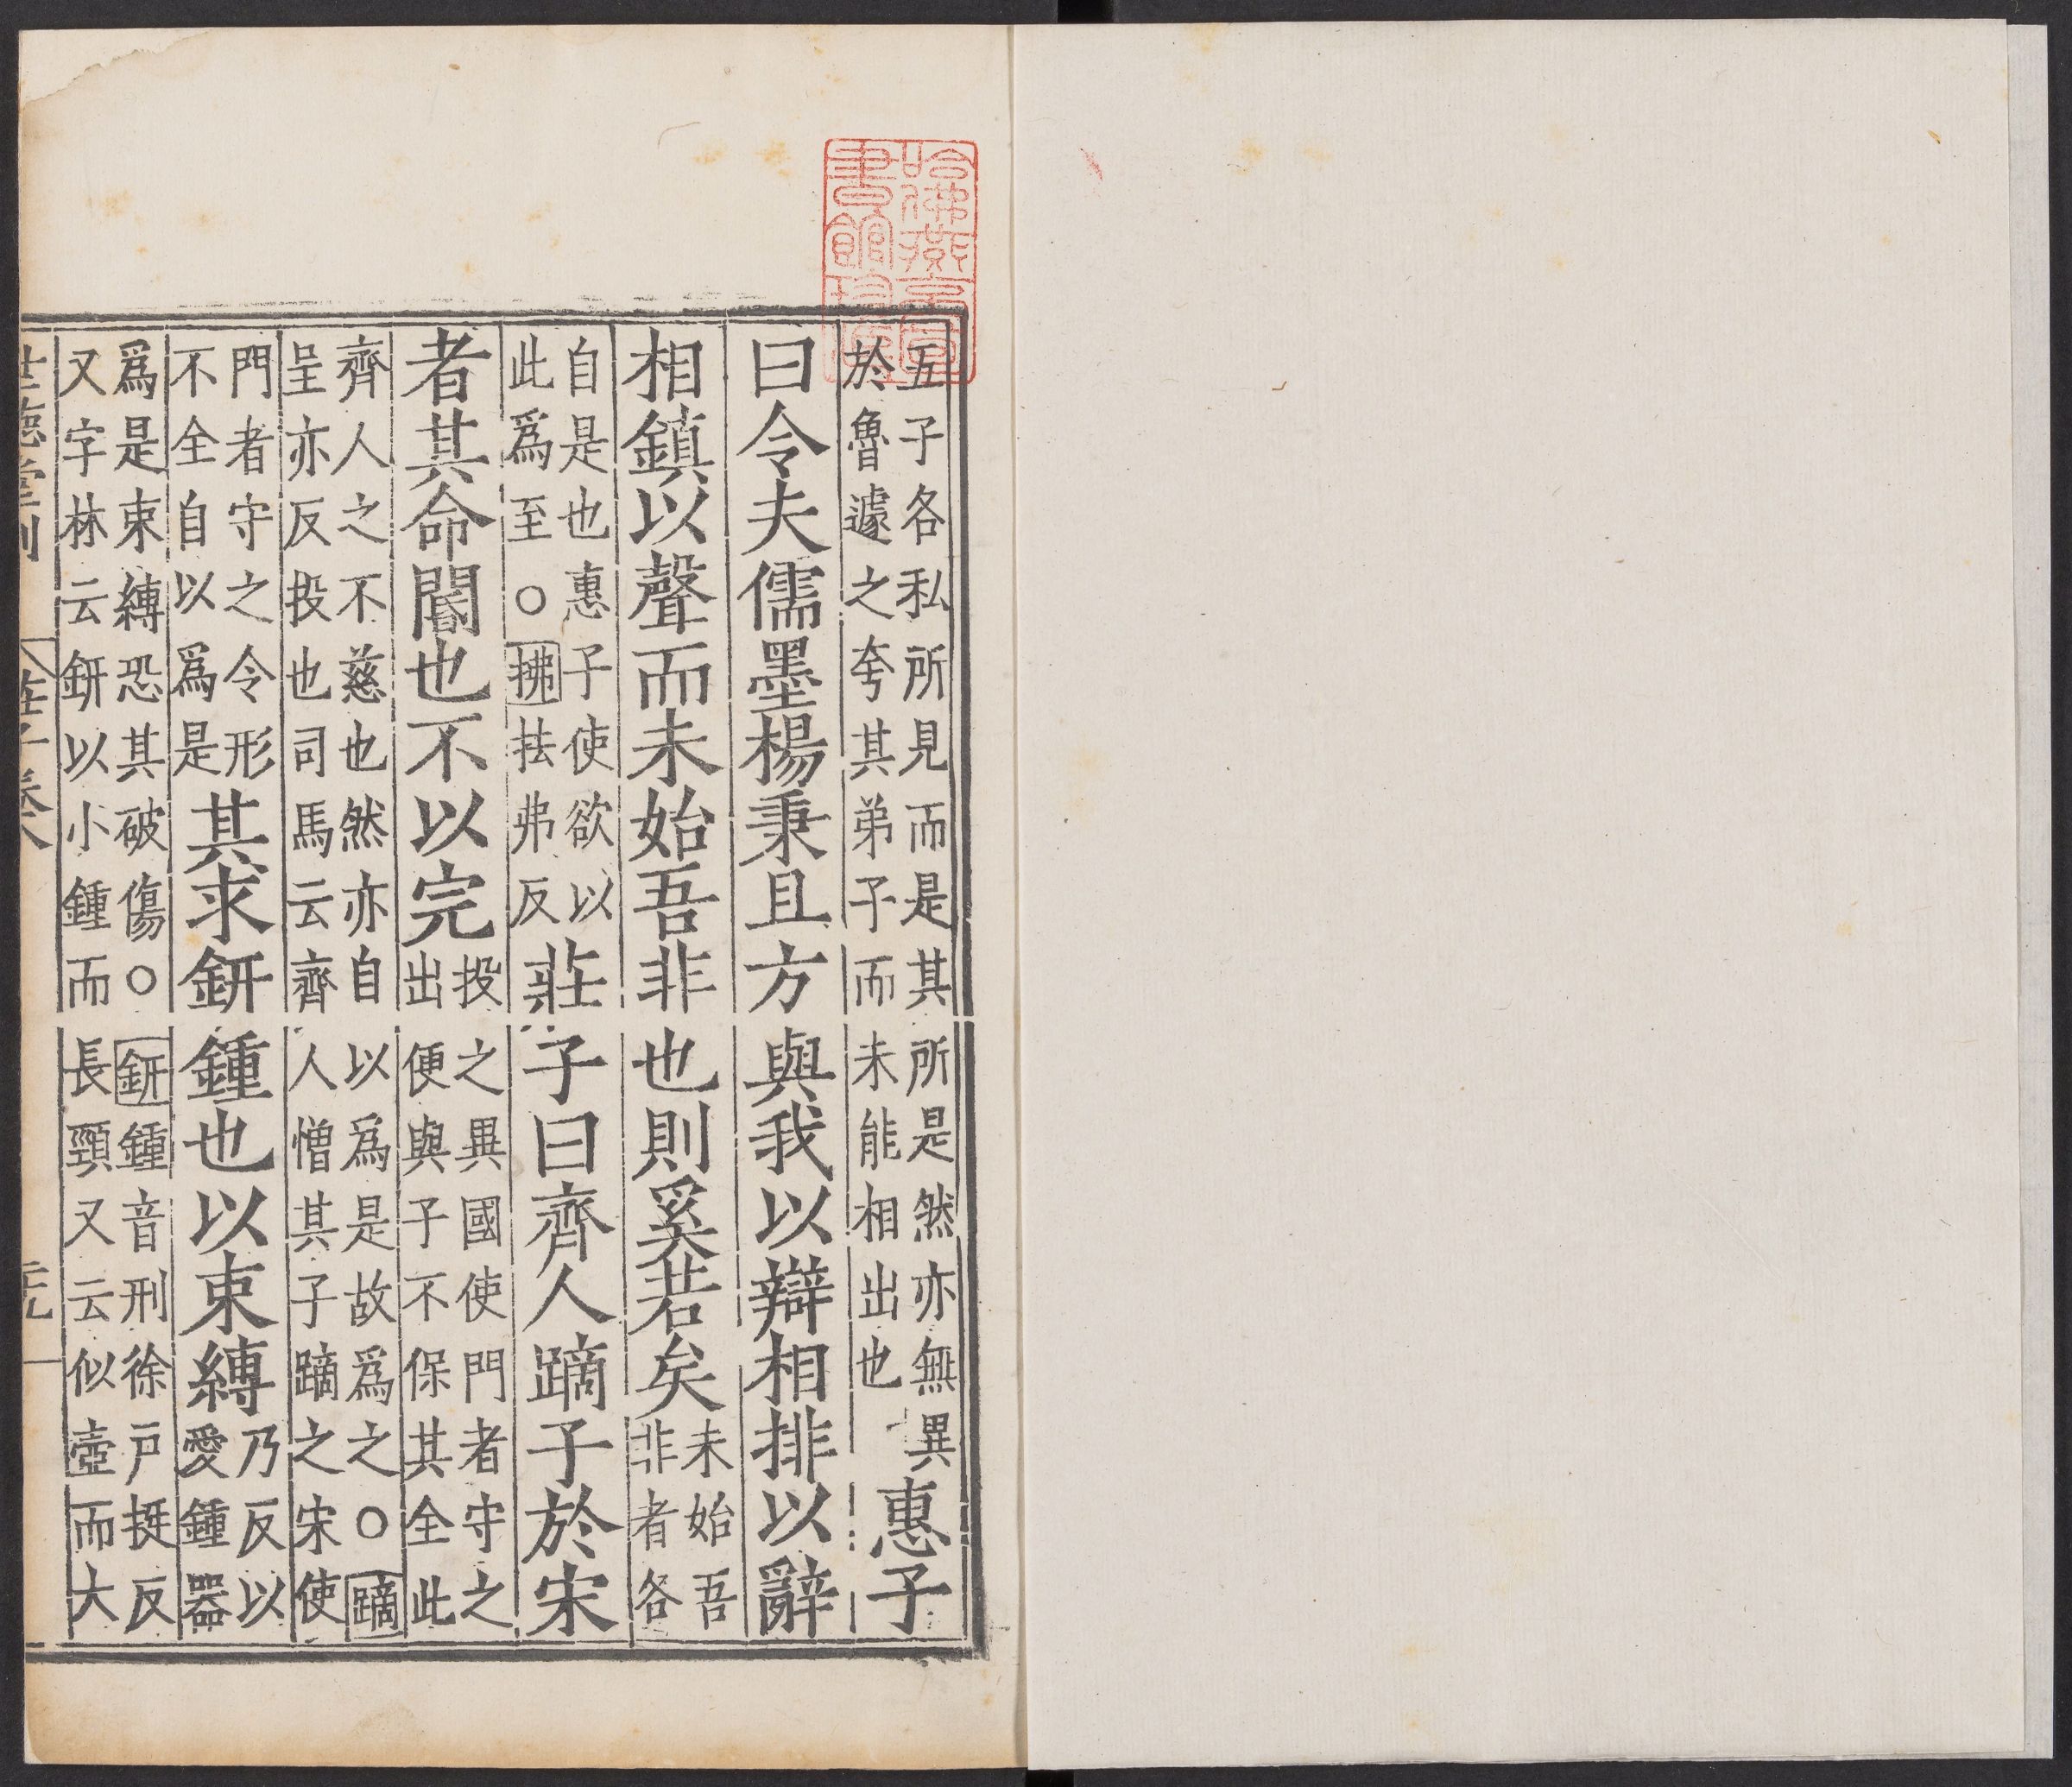 哈佛燕京圖
書館珍藏
五子各私所見而是其所是然亦無異
於魯遽之夸其弟子而未能相出也
惠子
曰令夫儒墨楊秉且方與我以辯相排以辭
相鎮以聲而未始吾非也則奚若矣
未始吾
非者各
自是也惠子使欲以
此爲至○拂扶弗反
莊子曰齊人蹢子於宋
者其命閽也不以完
投之異國使門者守之
出便與子不保其全此
齊人之不慈也然亦自以爲是故爲之○蹢
呈亦反投也司馬云齊人憎其子蹢之宋使
門者守之令形
不全自以爲是
其求鈃鍾也以束縛
乃反以
愛鍾器
爲是束縛恐其破傷○鈃鍾音刑徐戸挺反
又字林云鈃以小鍾而長頸又云似壺而大
世德堂刊
莊子卷八